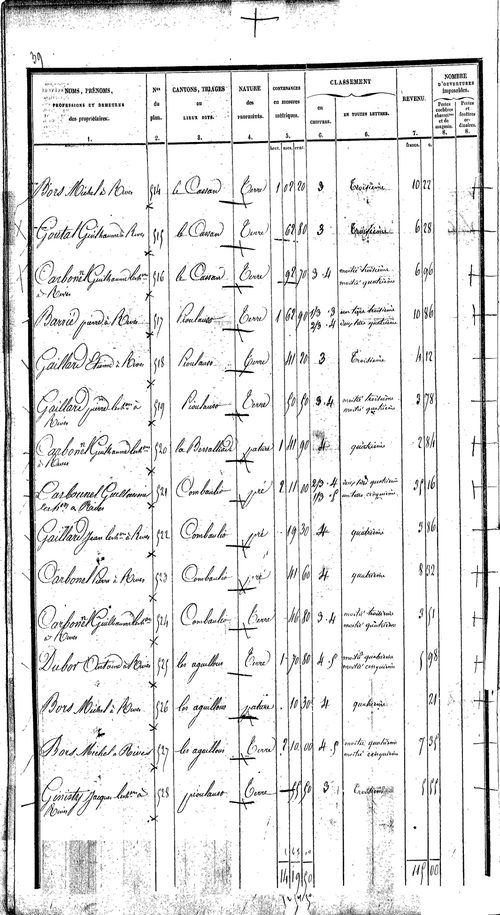 39
NOMS, PRÉNOMS,
PROFESSIONS ET DEMEURES
des propriétaires.
1.
Nos
du
plan.
2.
CANTONS, TRIAGES
ou
LIEUX DITS.
3.
NATURE
des
PROPRIÉTÉS.
4.
CONTENANCES
en mesures
métriques.
5.
CLASSEMENT
en
CHIFFRES.
6.
EN TOUTES LETTRES.
6.
REVENU.
7.
NOMBRE
D'OUVERTURES
imposables.
Portes
cochères
charretières
et de
magasin.
8.
Portes
et
fenêtres
ordinaires.
8.
hect. ares. cent.
francs. c.
Bors Michel à Rives 514 le Cassan Terre 1 02 20 3 Troisième 10 22
Goutal Guilhaume à Rives 515 le Cassan Terre 62 80 3 Troisième 6 28
Carbonel Guilhaume 516 le Cassan Terre 92 70 3 . 4 moitié troisième 6 96
à Rives moitié quatrième
Barrié à Rives 517 Pioulauso Terre 1 62 90 1/3 . 3 un tiers troisième 10 86
2/3 . 4 deux tiers quatrième
Gaillard à Rives 518 Pioulauso Terre 41 20 3 Troisième 4 12
Gaillard pierre à 519 Pioulauso Terre 50 50 3 . 4 moitié troisième 3 78
Rives moitié quatrième
Carbonel Guilhaume 520 pature 1 41 90 4 quatrième 2 84
à Rives
Carbonnel Guilhaume 521 Combaulié pré 2 11 00 2/3 . 4 deux tiers quatrième 35 16
à Rives 1/3 . 5 un tiers cinquième
Gaillard Jean à Rives 522 Combaulié pré 19 30 4 quatrième 3 86
Carbonel Pierre à Rives 523 Combaulié pré 41 60 4 quatrième 8 32
Carbonel Guilhaume 524 Combaulié Terre 46 80 3 . 4 moitié troisième 3 51
à Rives moitié quatrième
Dubor Antoine à Rives 525 les aguillous Terre 1 70 80 4 . 5 moitié quatrième 5 98
moitié cinquième
Bors Michel à Rives 526 les aguillous pature 10 30 4 quatrième 21
Bors Michel à Rives 527 les aguillous Terre 2 10 00 4 . 5 moitié quatrième 7 35
moitié cinquième
Ginisty Jacques à 528 pioulauso Terre 55 50 3 Troisième 5 55
Rives
14 19 50 115 00